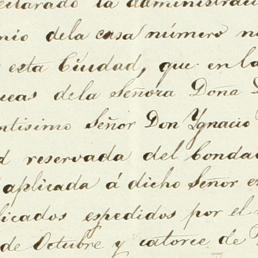 clarado la administraci
nio de la casa número no
esta Ciudad, que en la
ueas de la Señora Dona
ntisimo Señor Don Ygnacio
d reservada del Condad
aplicada á dicho Señor e
licados espedidos por el
de Octubre y catorce de